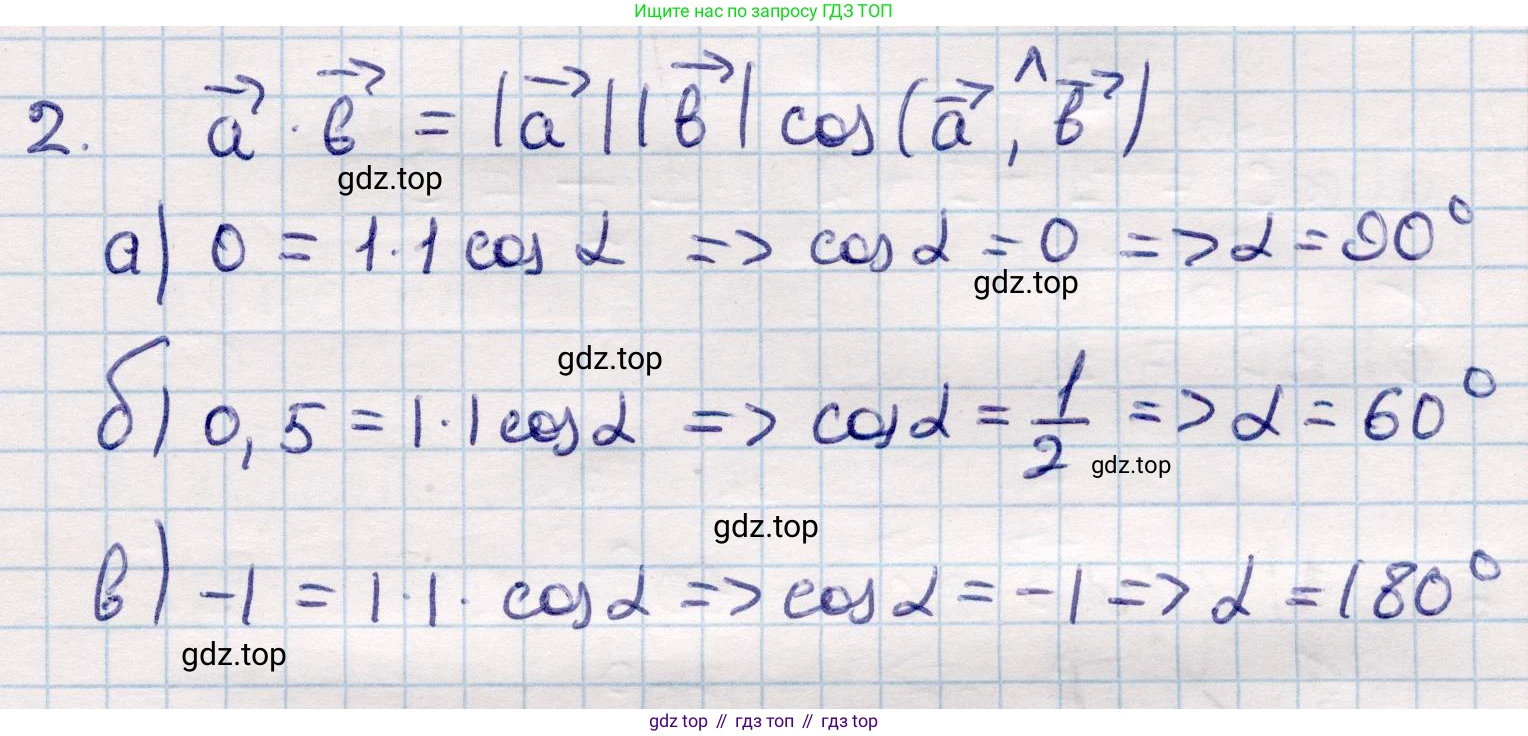 Ищите нас по запросу ГДЗ ТОП
2. a⃗ · b⃗ = |a⃗||b⃗| cos(a⃗ ,^ b⃗)
gdz.top
а) 0 = 1·1 cos α => cos α = 0 => α = 90°
gdz.top
gdz.top
б) 0,5 = 1·1 cos α => cos α = 1/2 => α = 60°
gdz.top
gdz.top
в) -1 = 1·1· cos α => cos α = -1 => α = 180°
gdz.top
gdz top // гдз топ // гдз top